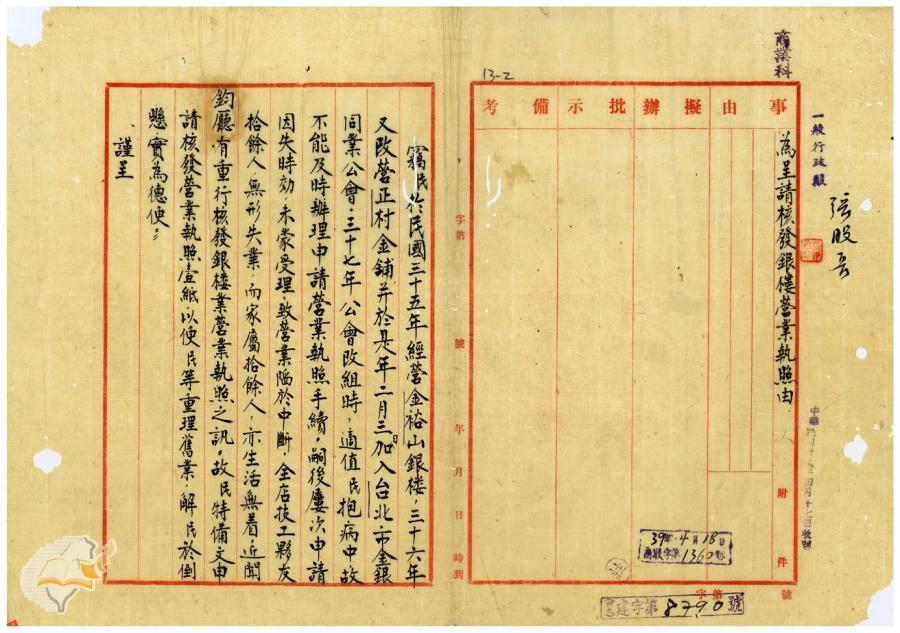 商業科
一般行政股
張股長
13-2
事由
擬辦
批示
備考
為呈請核發銀楼營業執照由
附件
號
字第
39年4月18日
商股字第1360號
建字第8790號
字第
號
年
月
日
時到
竊民於民國三十五年經營金裕山銀楼，三十六年
又改營正村金舖，并於是年二月三日加入台北市金銀
同業公會，三十七年公會改組時，適值民抱病中故
不能及時辦理申請營業執照手續，嗣後屢次申請
因失時効，未蒙受理，致營業陷於中斷，全店技工夥友
拾餘人，無形失業，而家屬拾餘人，亦生活無着，近聞
鈞廳有重行核發銀楼業營業執照之訊，故民特備文申
請核發營業執照壹紙，以便民等重理舊業，解民於倒
懸，實為德便。
謹呈